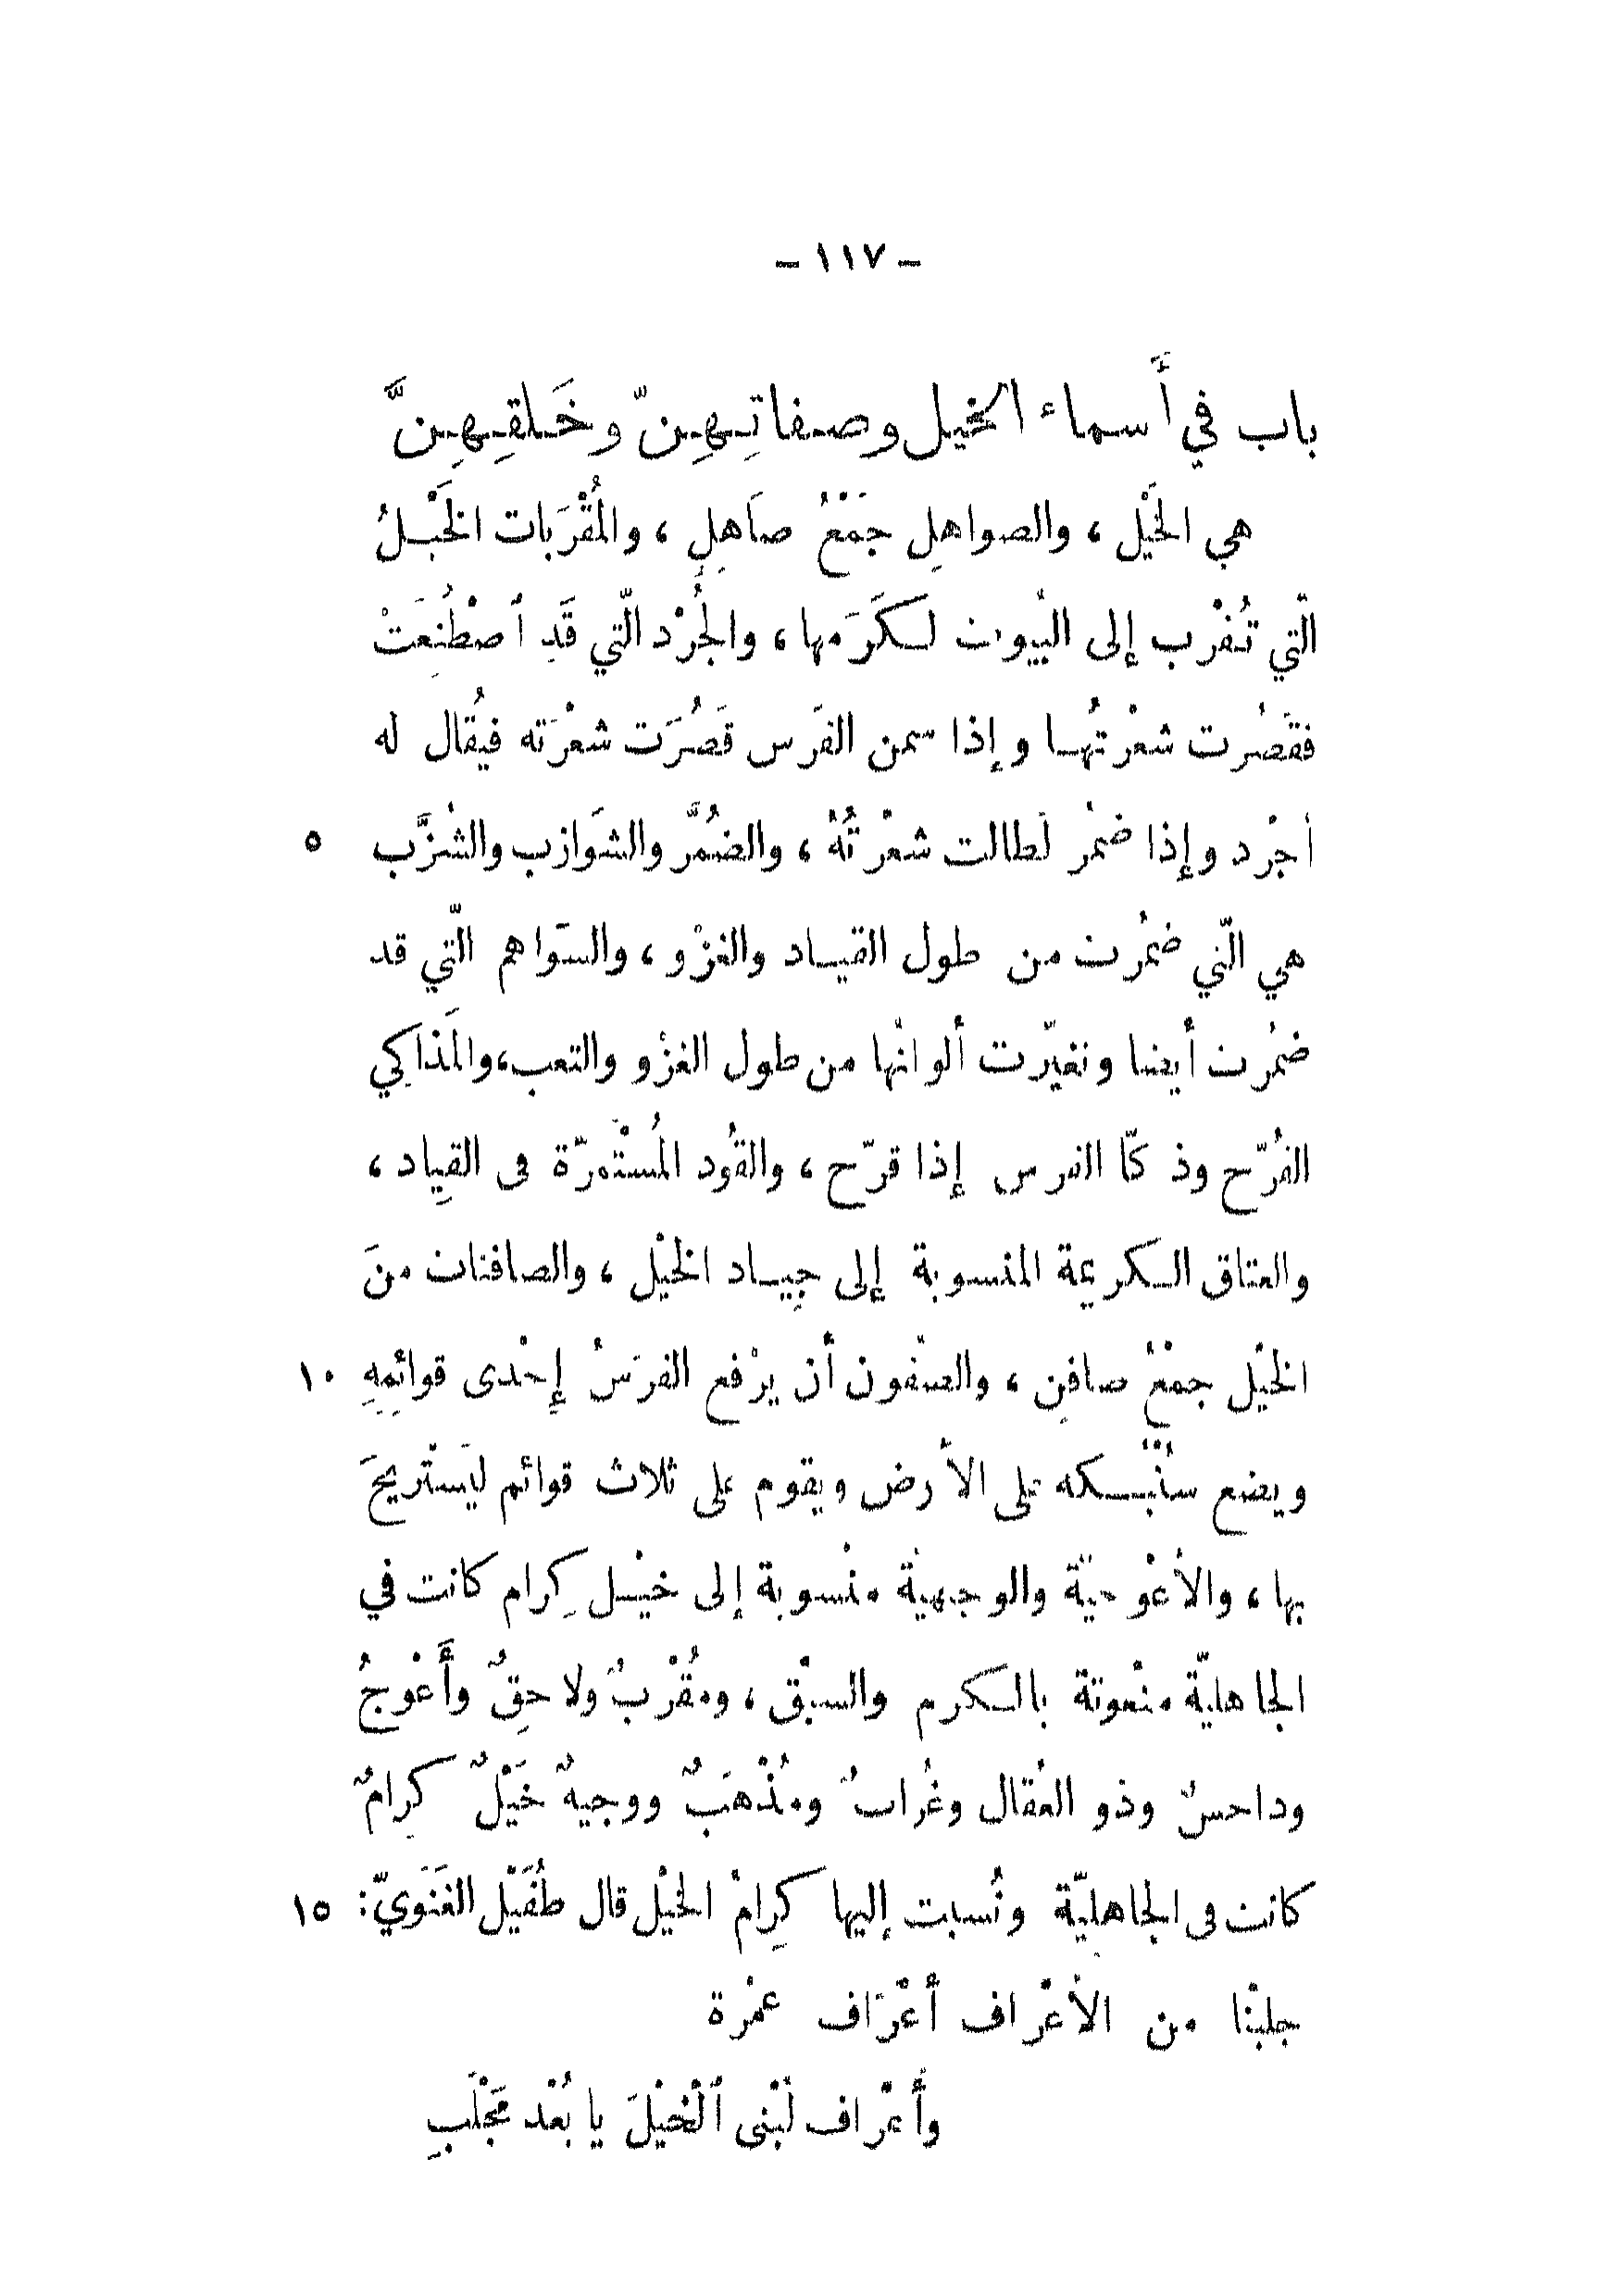 - ١١٧ -
باب في أَسماء الخيل وصفاتِهِنّ وخَلقِهِنَّ
هي الخَيْل ، والصواهلِ جَمْعُ صَاهلٍ ، والمُقْرَبات الخَيْلُ
الّتي تُقْرب إلى البُيوت لكَرَمها ، والجُرْد الّتي قَدِ ٱصْطُنِعَتْ
فقَصُرت شعْرتُها وإذا سمن الفَرس قَصُرَت شعْرَته فيُقال له
أجْرد وإذا ضمُر لَطالت شعْرتُهُ ، والضُمَّر والشَوازب والشُزَّب ٥
هي الّتي ضمُرت من طول القياد والغزْو ، والسَواهم الّتي قد
ضمُرت أيضا وتغيّرت ألوانُها من طول الغزْو والتعب، والمَذاكِي
القُرّح وذكّا الفرس إذا قرّح ، والقُود المُسْتَمرّة فى القيِاد ،
والعتاق الكريمة المنسوبة إلى جِياد الخيْل ، والصافنات منَ
الخيْل جمْعُ صافنِ ، والصفُون أن يرْفع الفرَسُ إِحْدى قوائمِهِ ١٠
ويضع سُنْبُكه على الأَرض ويقوم على ثلاث قوائم ليَسْتَريحَ
بها ، والأعْوجيّة والوجيهيّة منْسوبة إلى خيْل كِرام كانت في
الجاهليّة منْعوتة بالكرم والسبْق ، ومُقْربٌ ولاحِقٌ وأَعْوجُ
وداحسٌ وذو العُقال وغُرابٌ ومُذْهَبٌ ووجيهٌ خَيْلٌ كرامٌ
كانت فى الجاهليّة ونُسبت إليها كِرامُ الخيْل قال طُفَيْل الغَنَويّ: ١٥
جلبْنا من الأعْراف أعْرَاف غمْرة
وأَعْراف لُبْنى ٱلْخيْلَ يا بُعْد مَجْلَبِ